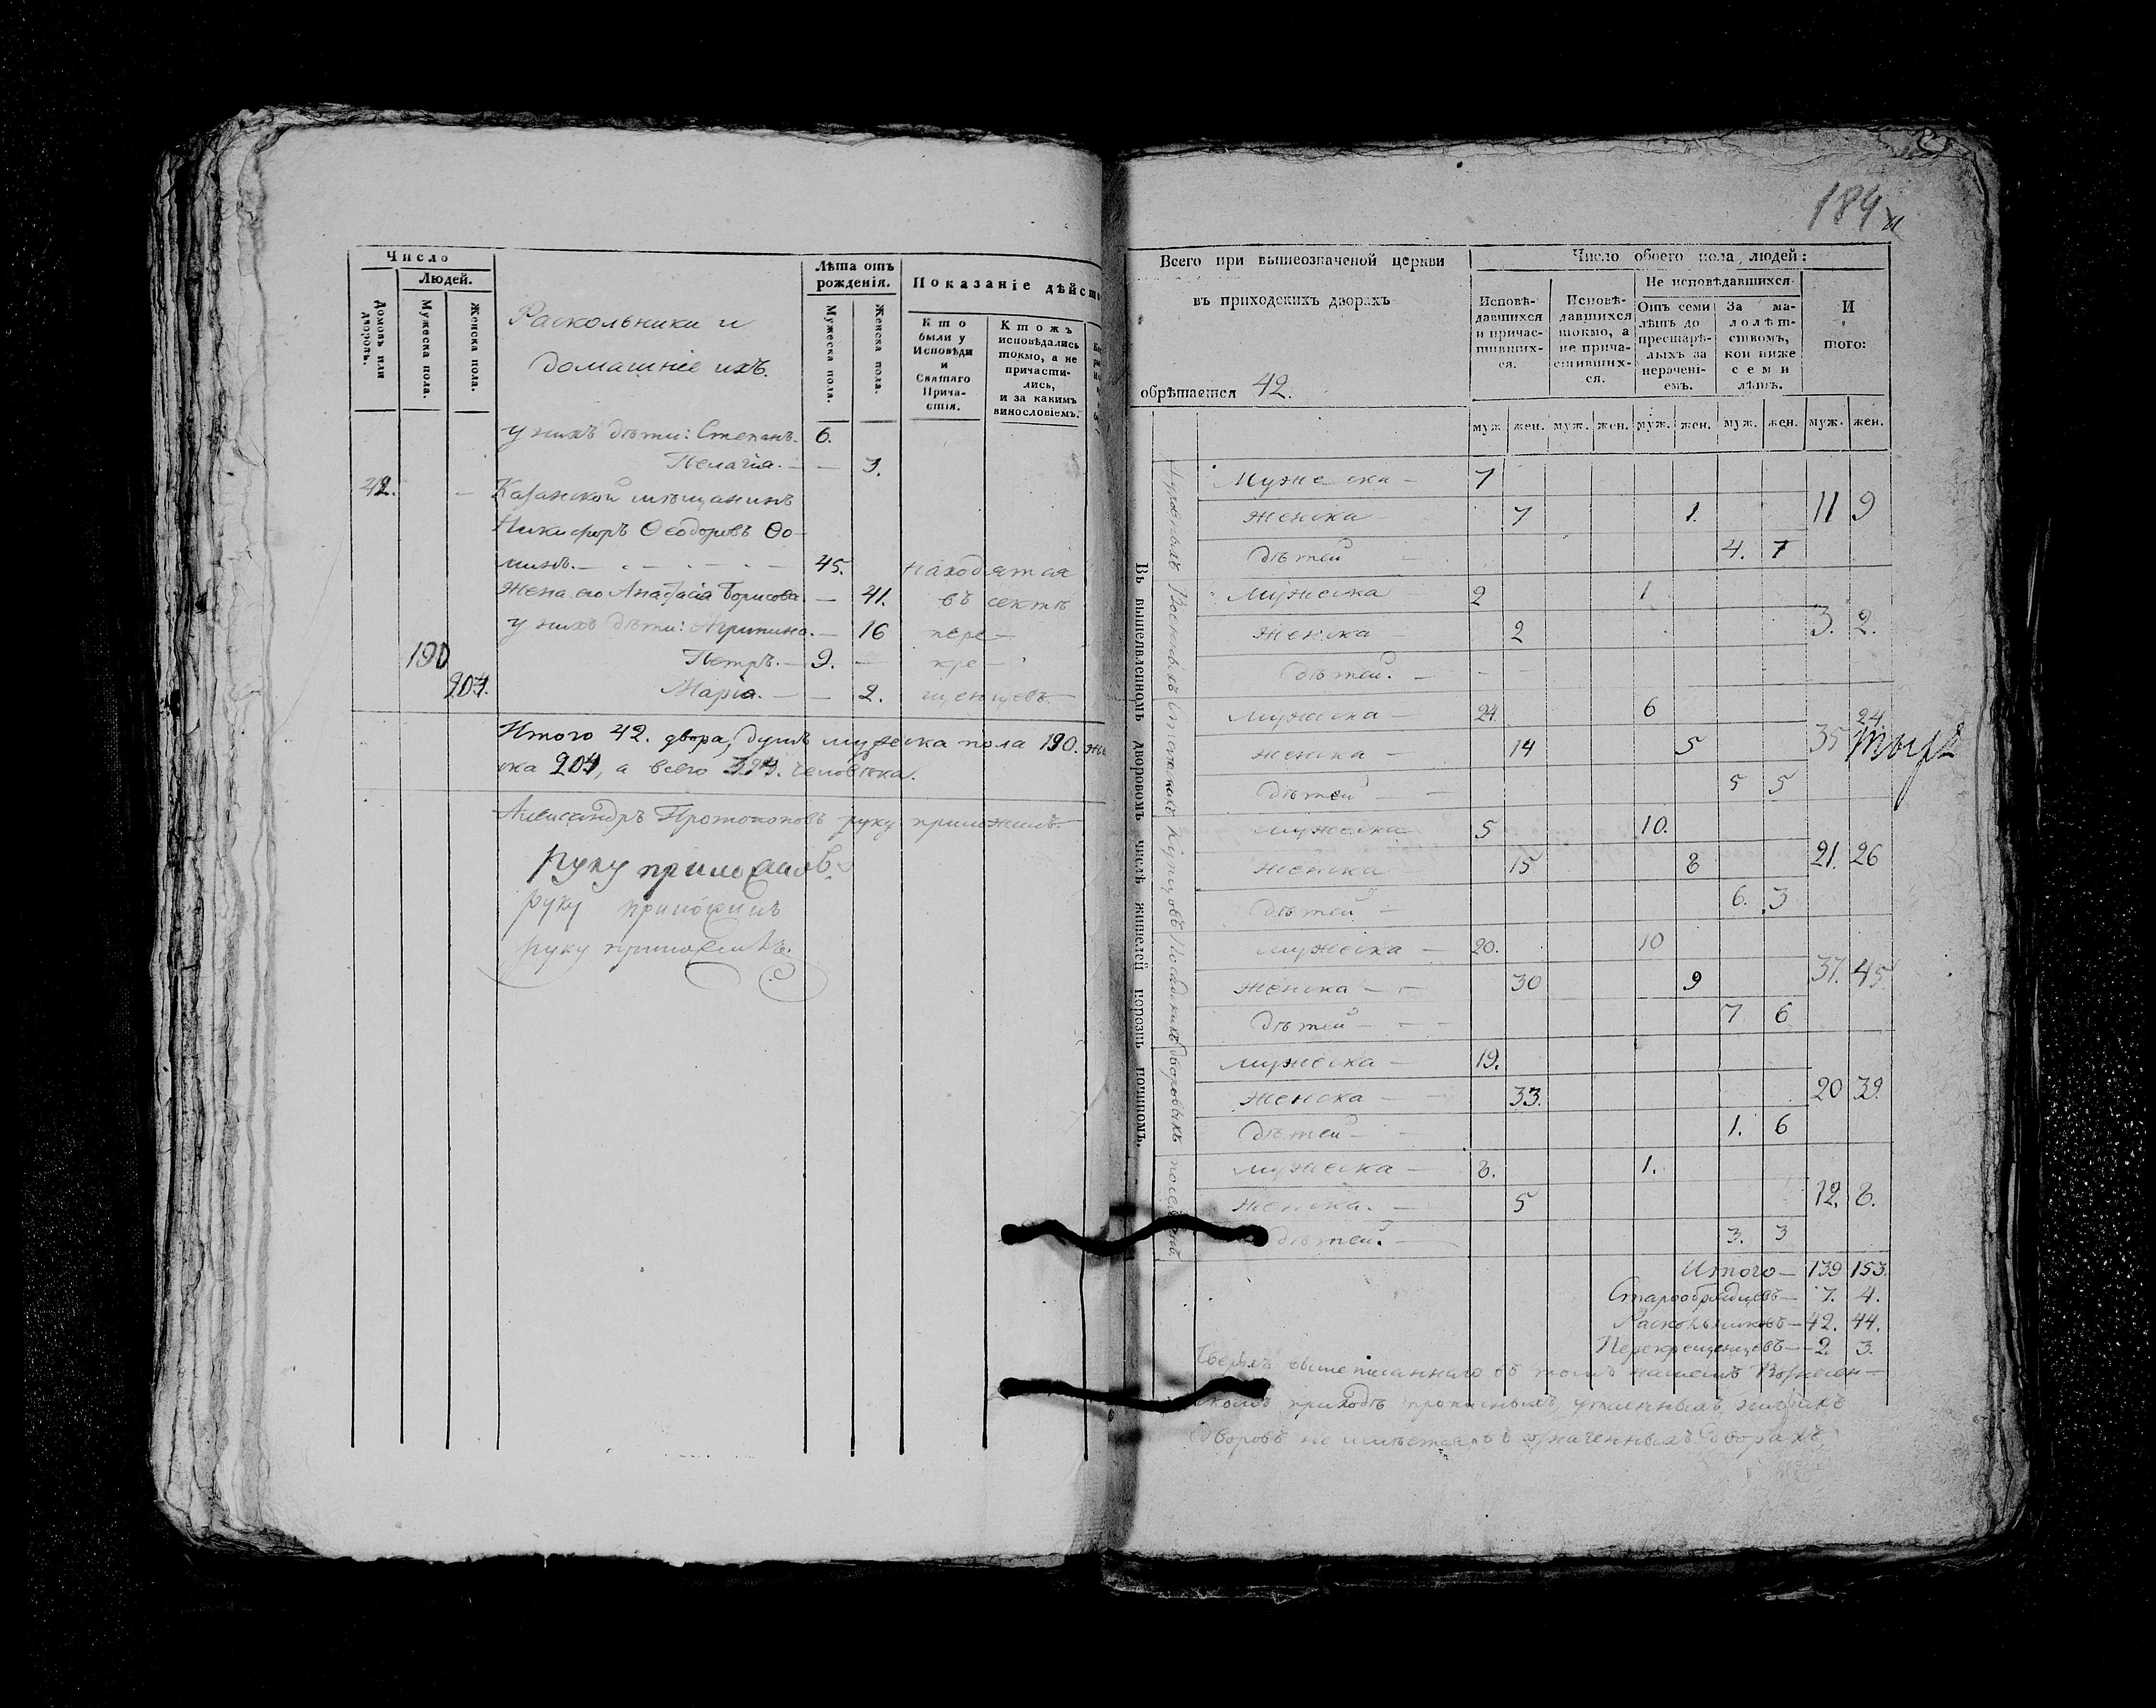 Число
Людей.
Домовъ или дворовъ.
Мужеска пола.
Женска пола.
Раскольники и
домашніе ихъ.
Лѣта отъ рожденія.
Мужеска пола.
Женска пола.
Показаніе дѣйст
Кто были у Исповѣди и Святаго Причастія.
Ктожъ исповѣдались токмо, а не причастились, и за какимъ винословіемъ.
у нихъ дѣти: Степанъ. 6.
Пелагіа. — — 3.
42. — Казанской мѣщанинъ
Никифоръ Ѳеодоровъ Ѳо-
минъ. — 45. находятся
Жена его Анастасіа Борисова. — 41. въ сектѣ
у нихъ дѣти: Агрипина. — 16 пере-
190 Петръ. — 9. — кре-
204. Маріа. — — 2. щенцевъ
Итого 42. двора, душъ мужеска пола 190. жен
ска 204, а всего 394. человѣка.
Александръ Протопоповъ руку приложилъ
руку приложилъ
руку приложилъ
руку приложилъ.
184
Всего при вышеозначеной церкви
въ приходскихъ дворахъ
обрѣтается 42.
Число обоего пола людей:
Исповѣдавшихся и причастившихся.
Исповѣдавшихся токмо, а не причастившихся.
Не исповѣдавшихся
Отъ семи лѣтъ до престарѣлыхъ за нераченіемъ.
За малолѣтствомъ, кои ниже семи лѣтъ.
И того:
муж. жен. муж. жен. муж. жен. муж. жен. муж. жен.
Въ вышеявленномъ дворовомъ числѣ жителей порознь починомъ.
Духовныхъ Военныхъ Статскихъ Купцовъ Посадскихъ дворовыхъ поселянъ.
Мужеска — 7
Женска 7 1. 11 9
дѣтей 4. 7
Мужеска 2 1
Женска 2 3. 2.
дѣтей. —
Мужеска — 24. 6
Женска — 14 5 35 24
дѣтей — 5 5
Мужеска 5 10.
Женска 15 8 21. 26
дѣтей — 6. 3
Мужеска — 20. 10
Женска — 30 9 37. 45
дѣтей — 7 6
Мужеска — 19.
Женска — 33. 20 39.
дѣтей — 1. 6
Мужеска — 8. 1.
Женска. — 5 12. 8.
дѣтей. — 3. 3
Итого — 139 153
Старообрядцевъ — 7. 4.
Раскольниковъ — 42. 44.
Перекрещенцевъ — 2. 3.
Сверхъ вышеписаннаго въ томъ нашемъ Вознесен-
скомъ приходѣ прописныхъ, утаенныхъ жилыхъ
дворовъ не имѣется, и въ означенныхъ дворахъ